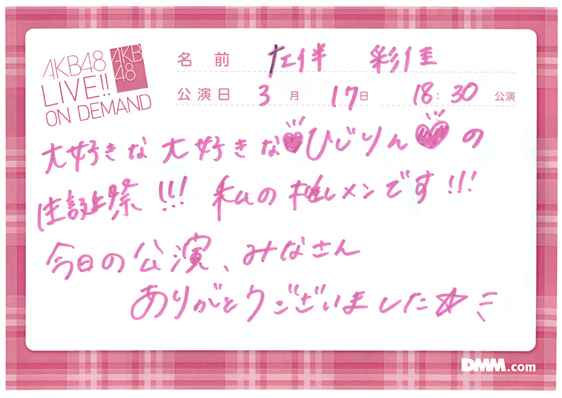 AKB48
LIVE!!
ON DEMAND
AKB
48
名前 左伴 彩佳
公演日 3月 17日 18:30 公演
大好きな大好きな♥ひじりん♥の
生誕祭!!! 私の推しメンです!!!
今日の公演、みなさん
ありがとうございました☆ミ
DMM.com